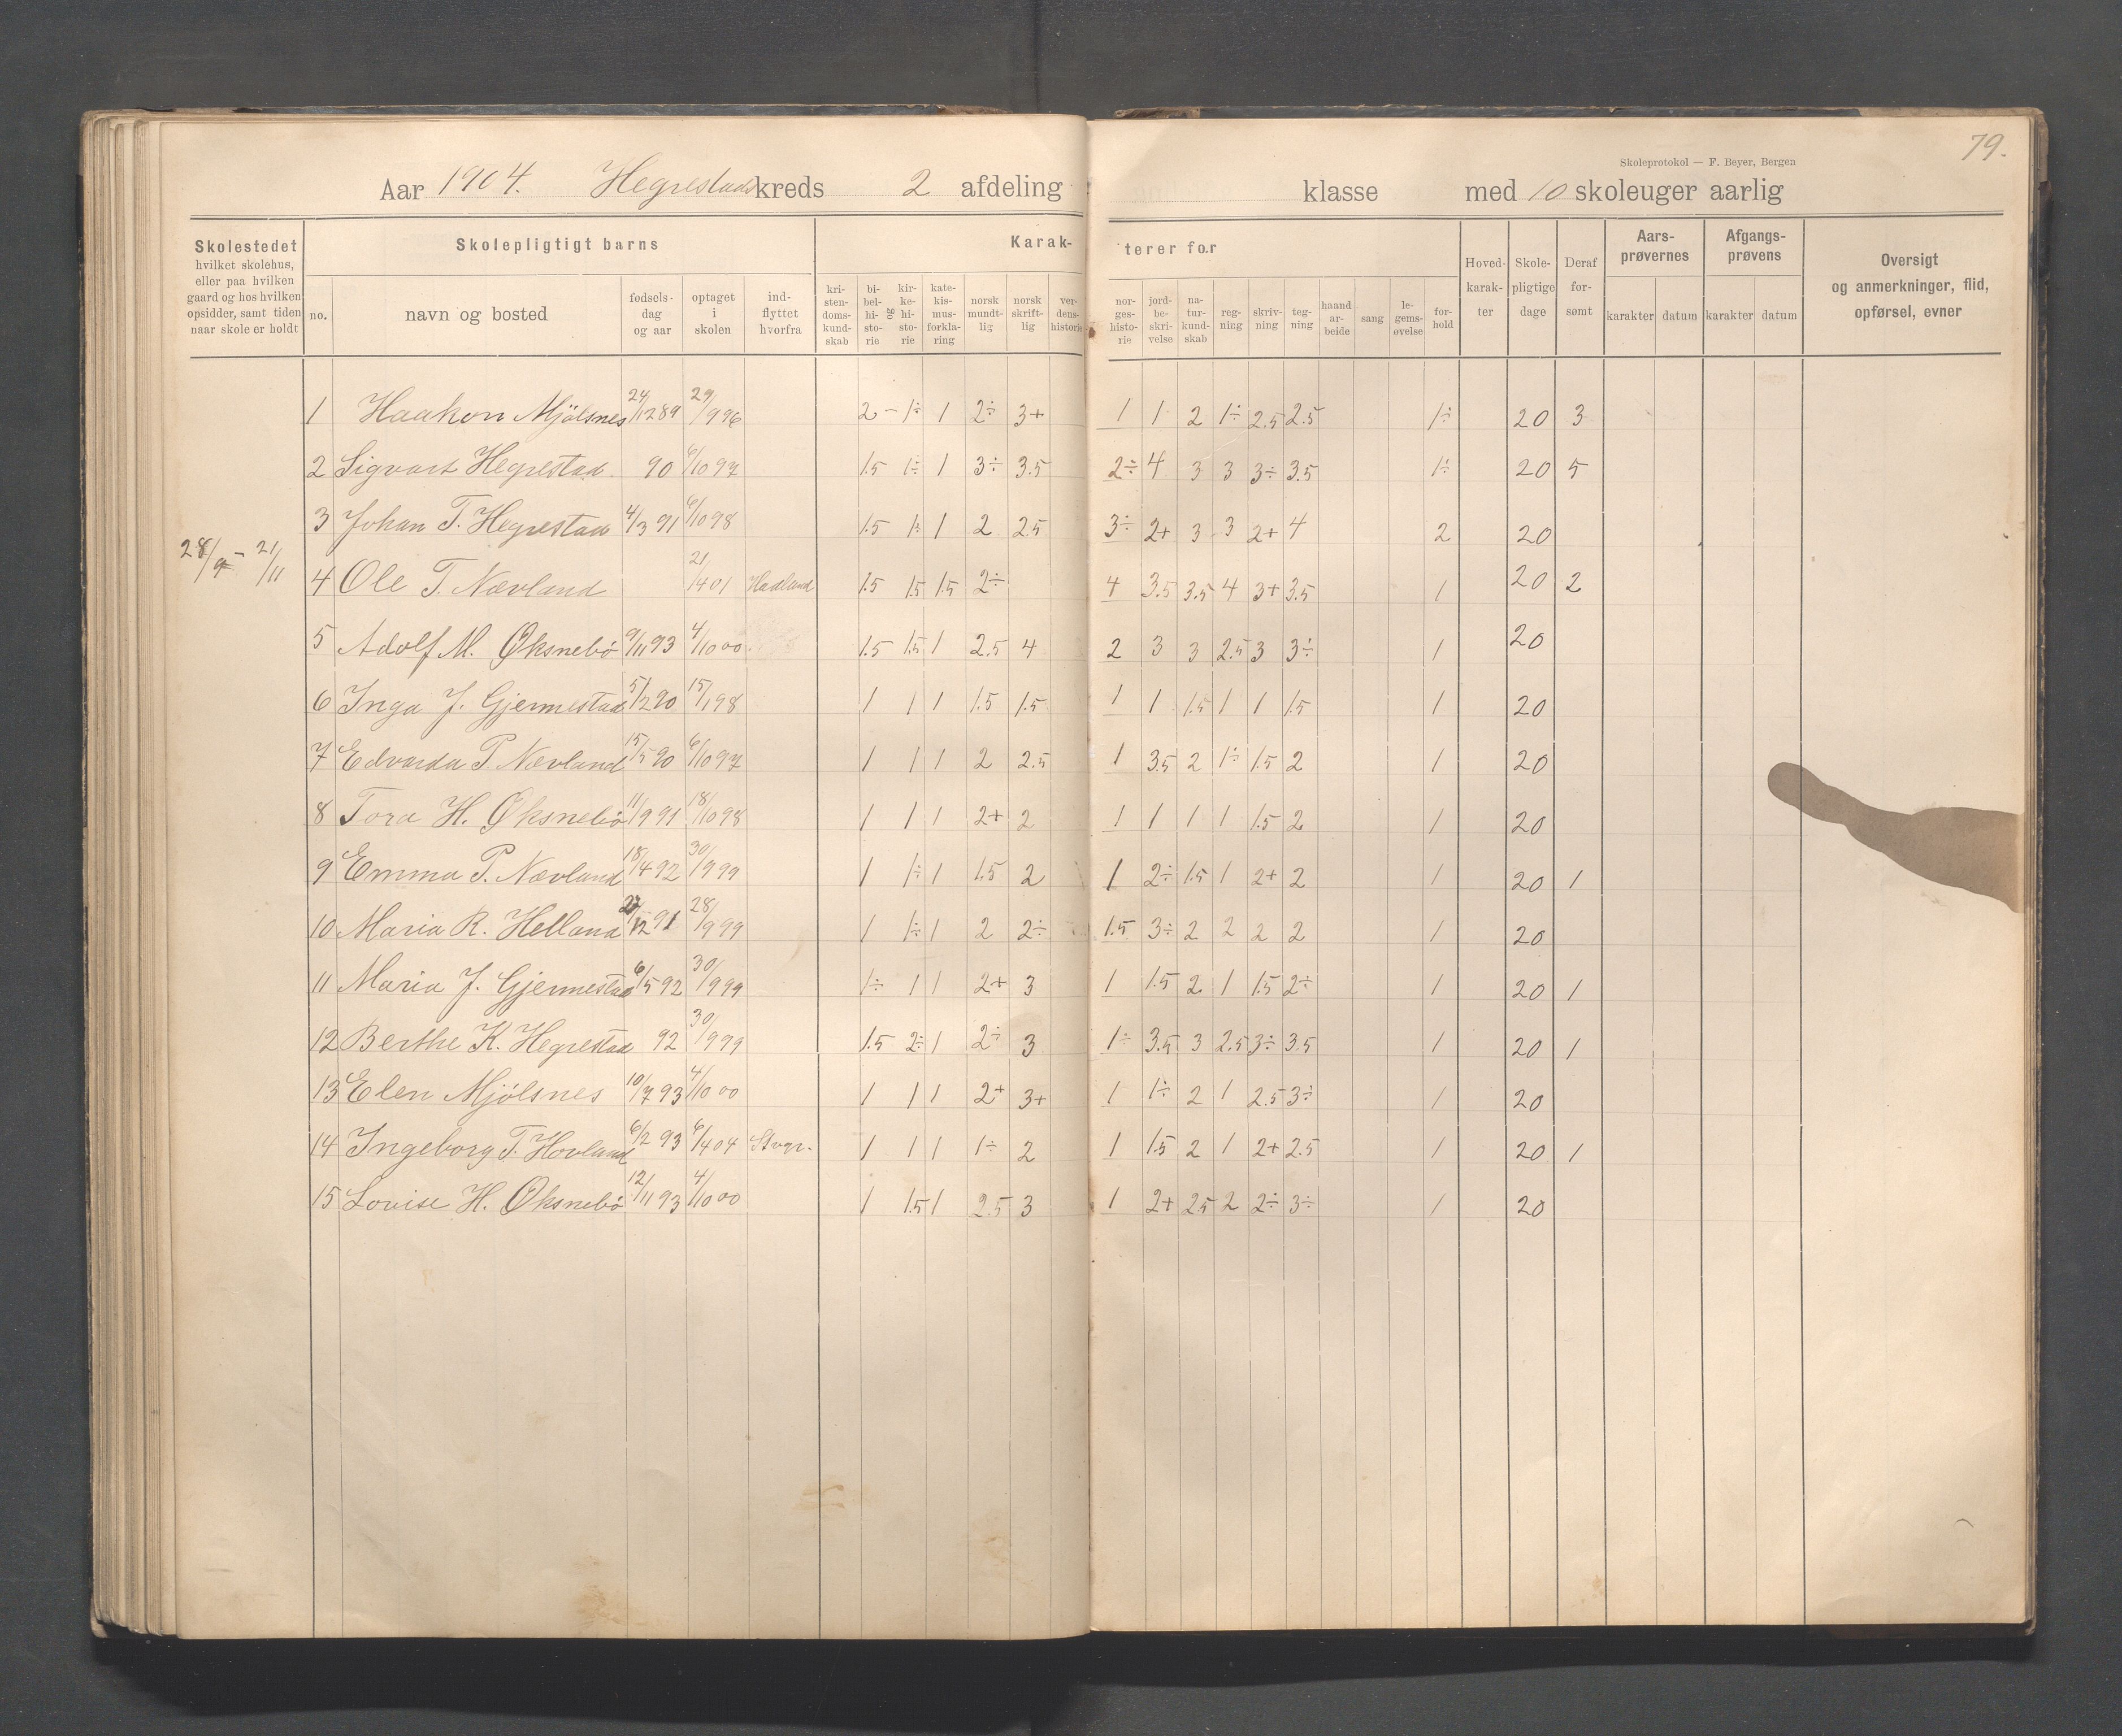 79.
Skoleprotokol — F. Beyer, Bergen
Aar 1904. Hegrestads kreds 2 afdeling klasse med 10 skoleuger aarlig
Skolestedet hvilket skolehus, eller paa hvilken gaard og hos hvilken opsidder, samt tiden naar skole er holdt
Skolepligtigt barns
no. navn og bosted fødsels-dag og aar optaget i skolen ind-flyttet hvorfra
Karak-terer for
kri-sten-doms-kund-skab bi-bel-hi-sto-rie og kir-ke-hi-sto-rie kate-kis-mus-forkla-ring norsk mundt-lig norsk skrift-lig ver-dens-historie nor-ges-histo-rie jord-be-skri-velse na-tur-kund-skab reg-ning skriv-ning teg-ning haand ar-beide sang le-gems-øvelse for-hold
Hoved-karak-ter Skole-pligtige dage Deraf for-sømt
Aars-prøvernes karakter datum Afgangs-prøvens karakter datum
Oversigt og anmerkninger, flid, opførsel, evner
28/9 - 21/11
1 Haakon Mjölsnes 24/12 89 29/9 96 2 - 1÷ 1 2÷ 3+ 1 1 2 1÷ 2.5 2.5 1÷ 20 3
2 Sigvart Hegrestad 90 6/10 97 1.5 1÷ 1 3÷ 3.5 2÷ 4 3 3 3÷ 3.5 1÷ 20 5
3 Johan T. Hegrestad 4/3 91 6/10 98 1.5 1÷ 1 2 2.5 3÷ 2+ 3 3 2+ 4 2 20
4 Ole T. Nævland 21/4 01 Hadland 1.5 1.5 1.5 2÷ 4 3.5 3.5 4 3+ 3.5 1 20 2
5 Adolf M. Øksnebö 9/11 93 4/10 00 1.5 1.5 1 2.5 4 2 3 3 2.5 3 3÷ 1 20
6 Inga J. Gjermestad 5/2 90 15/1 98 1 1 1 1.5 1.5 1 1 1.5 1 1 1.5 1 20
7 Edvarda P. Nævland 15/5 90 6/10 97 1 1 1 2 2.5 1 3.5 2 1÷ 1.5 2 1 20
8 Tora H. Øksnebö 11/9 91 18/10 98 1 1 1 2+ 2 1 1 1 1 1.5 2 1 20
9 Emma P. Nævland 18/4 92 30/9 99 1 1÷ 1 1.5 2 1 2÷ 1.5 1 2+ 2 1 20 1
10 Maria R. Helland 12 91 28/9 99 1 1÷ 1 2 2÷ 1.5 3÷ 2 2 2 2 1 20
11 Maria J. Gjermestad 6/5 92 30/9 99 1÷ 1 1 2+ 3 1 1.5 2 1 1.5 2÷ 1 20 1
12 Berthe K. Hegrestad 92 30/9 99 1.5 2÷ 1 2÷ 3 1÷ 3.5 3 2.5 3÷ 3.5 1 20 1
13 Elen Mjölsnes 10/7 93 4/10 00 1 1 1 2+ 3+ 1 1÷ 2 1 2.5 3÷ 1 20
14 Ingeborg T. Hovland 6/2 93 6/4 04 Stvgr. 1 1 1 1÷ 2 1 1.5 2 1 2+ 2.5 1 20 1
15 Lovise H. Øksnebö 12/11 93 4/10 00 1 1.5 1 2.5 3 1 2+ 2.5 2 2÷ 3÷ 1 20